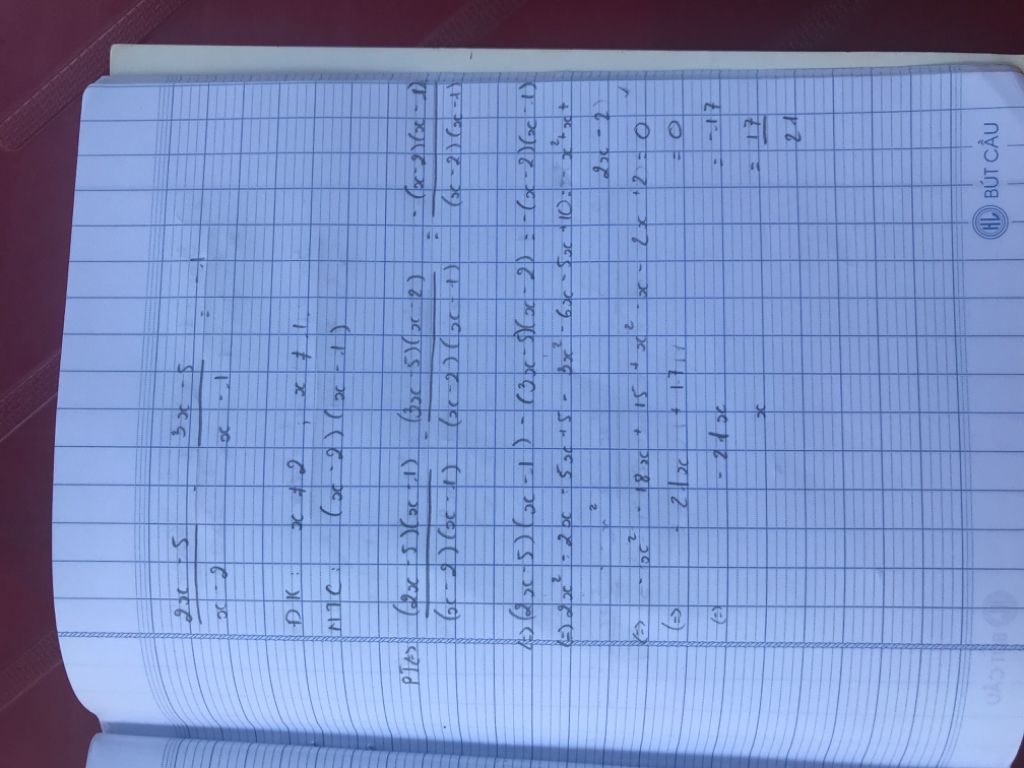 2x - 5 / x - 2 - 3x - 5 / x - 1 = -1
ĐK: x ≠ 2 ; x ≠ 1
MTC: (x - 2)(x - 1)
PT(=) (2x - 5)(x - 1) / (x - 2)(x - 1) - (3x - 5)(x - 2) / (x - 2)(x - 1) = - (x - 2)(x - 1) / (x - 2)(x - 1)
(=) (2x - 5)(x - 1) - (3x - 5)(x - 2) = - (x - 2)(x - 1)
(=) 2x² - 2x - 5x + 5 - 3x² - 6x - 5x + 10 = - x² + x +
2x - 2
(=) - x² - 18x + 15 + x² - x - 2x + 2 = 0
(=) - 21x + 17 = 0
(=) - 21x = -17
x = 17 / 21
HL BÚT CÂU